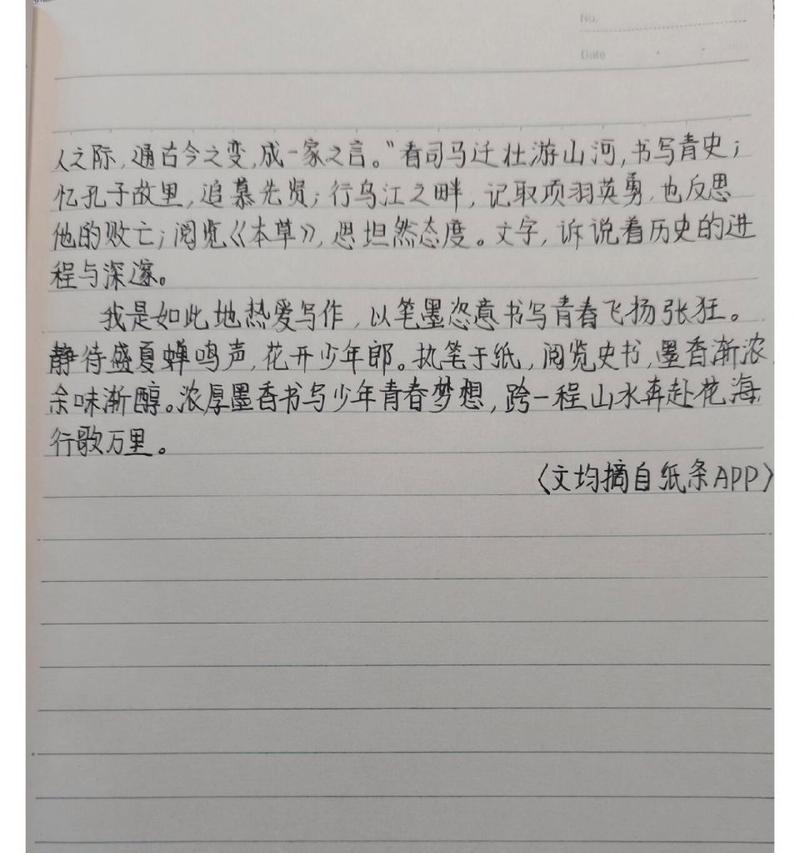 No.
Date
人之际,通古今之变,成一家之言。”看司马迁壮游山河,书写青史;
忆孔子故里,追慕先贤;行乌江之畔,记取项羽英勇,也反思
他的败亡;阅览《本草》,思坦然态度。文字,诉说着历史的进
程与深邃。
我是如此地热爱写作,以笔墨恣意书写青春飞扬张狂。
静待盛夏蝉鸣声,花开少年郎。执笔于纸,阅览史书,墨香渐浓,
余味渐醇。浓厚墨香书写少年青春梦想,跨一程山水奔赴花海,
行歌万里。
〈文均摘自纸条APP〉